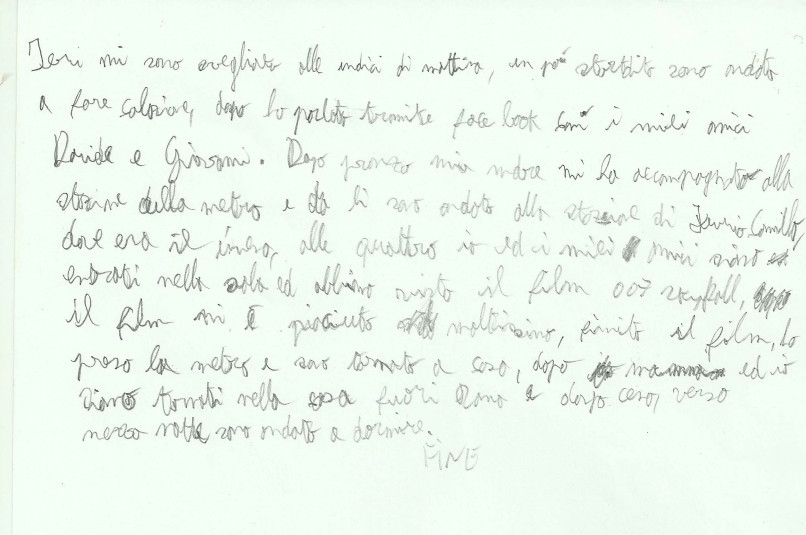 Ieri mi sono svegliato alle undici di mattina, un po' stordito sono andato
a fare colazione, dopo ho parlato tramite face book con i miei amici
Davide e Giovanni. Dopo pranzo mia madre mi ha accompagnato alla
stazione della metro e da li sono andato alla stazione di Furio Camillo,
dove era il cinema, alle quattro io ed i miei amici siamo
entrati nella sala ed abbiamo visto il film 007 skyfall,
il film mi è piaciuto moltissimo, finito il film, ho
preso la metro e sono tornato a casa, dopo mamma ed io
siamo tornati nella casa fuori Roma e dopo cena, verso
mezza notte sono andato a dormire.
FINE